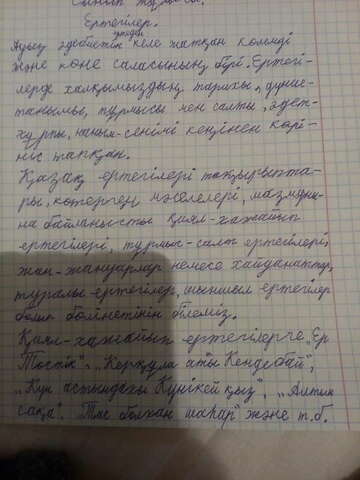 Сынып жұмысы.
Ертегілер.
Ауыз әдебиетін ертеден келе жатқан көлемді
және көне саласының бірі. Ертегі-
лерде халқымыздың тарихы, дүние-
танымы, тұрмысы мен салты, әдет-
ғұрпы, наным-сенімі кеңінен көрі-
ніс тапқан.
Қазақ ертегілері тақырыпта-
ры, көтерген мәселелері, мазмұны-
на байланысты қиял-ғажайып
ертегілері, тұрмыс-салт ертегілері,
жан-жануарлар немесе хайуанаттар,
туралы ертегілер, шыншыл ертегілер
болып бөлінетінін білеміз.
Қиял-ғажайып ертегілерге „Ер
Төстік", „Керқұла атты Кендебай",
„Күн астындағы Күнікей қыз", „Алтын
сақа". Тас болған шаһар" және т.б.